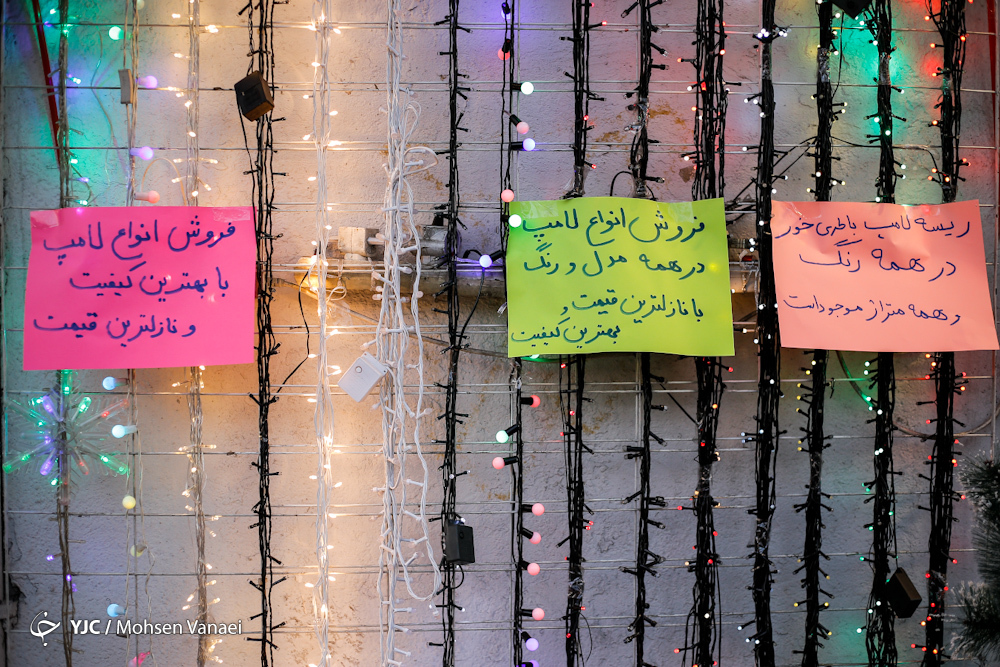 فروش انواع لامپ
با بهترین کیفیت
و نازلترین قیمت
فروش انواع لامپ
در همه مدل و رنگ
با نازلترین قیمت و
بهترین کیفیت
ریسه لامپ باطری خور
در همه رنگ
و همه متراژ موجود است
YJC / Mohsen Vanaei